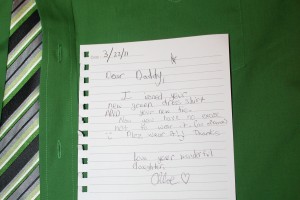 3/22/11
Dear Daddy,
I ironed your
new green dress shirt
AND your new tie.
Now you have no excuse
not to wear it.
Miss wear it! Thanks.
love your wonderful
daughter,
Chloe ♡